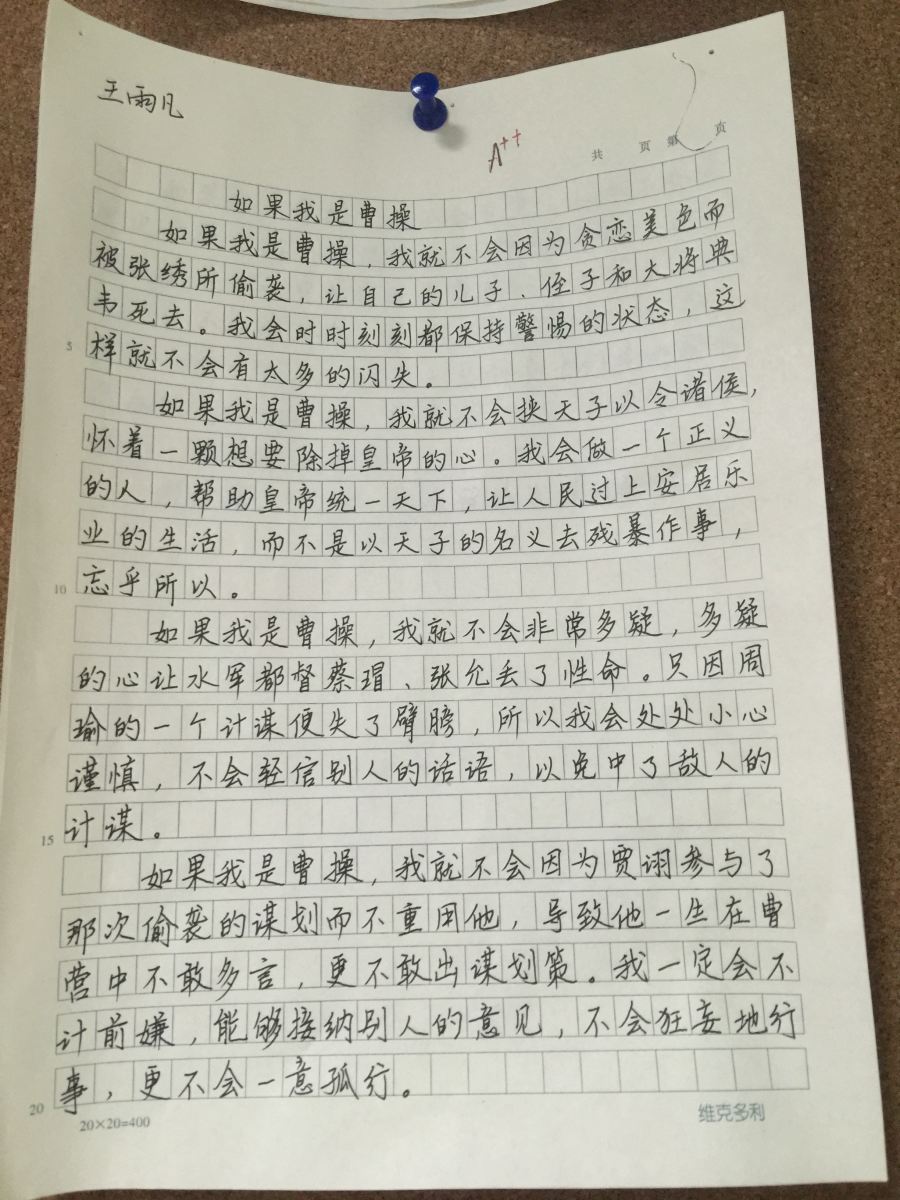 王雨凡
A++
共 页 第 页
如果我是曹操
如果我是曹操，我就不会因为贪恋美色而
被张绣所偷袭，让自己的儿子、侄子和大将典
韦死去。我会时时刻刻都保持警惕的状态，这
5
样就不会有太多的闪失。
如果我是曹操，我就不会挟天子以令诸侯，
怀着一颗想要除掉皇帝的心。我会做一个正义
的人，帮助皇帝统一天下，让人民过上安居乐
业的生活，而不是以天子的名义去残暴作事，
10
忘乎所以。
如果我是曹操，我就不会非常多疑，多疑
的心让水军都督蔡瑁、张允丢了性命。只因周
瑜的一个计谋便失了臂膀，所以我会处处小心
谨慎，不会轻信别人的话语，以免中了敌人的
15
计谋。
如果我是曹操，我就不会因为贾诩参与了
那次偷袭的谋划而不重用他，导致他一生在曹
营中不敢多言，更不敢出谋划策。我一定会不
计前嫌，能够接纳别人的意见，不会狂妄地行
20
事，更不会一意孤行。
20×20=400
维克多利